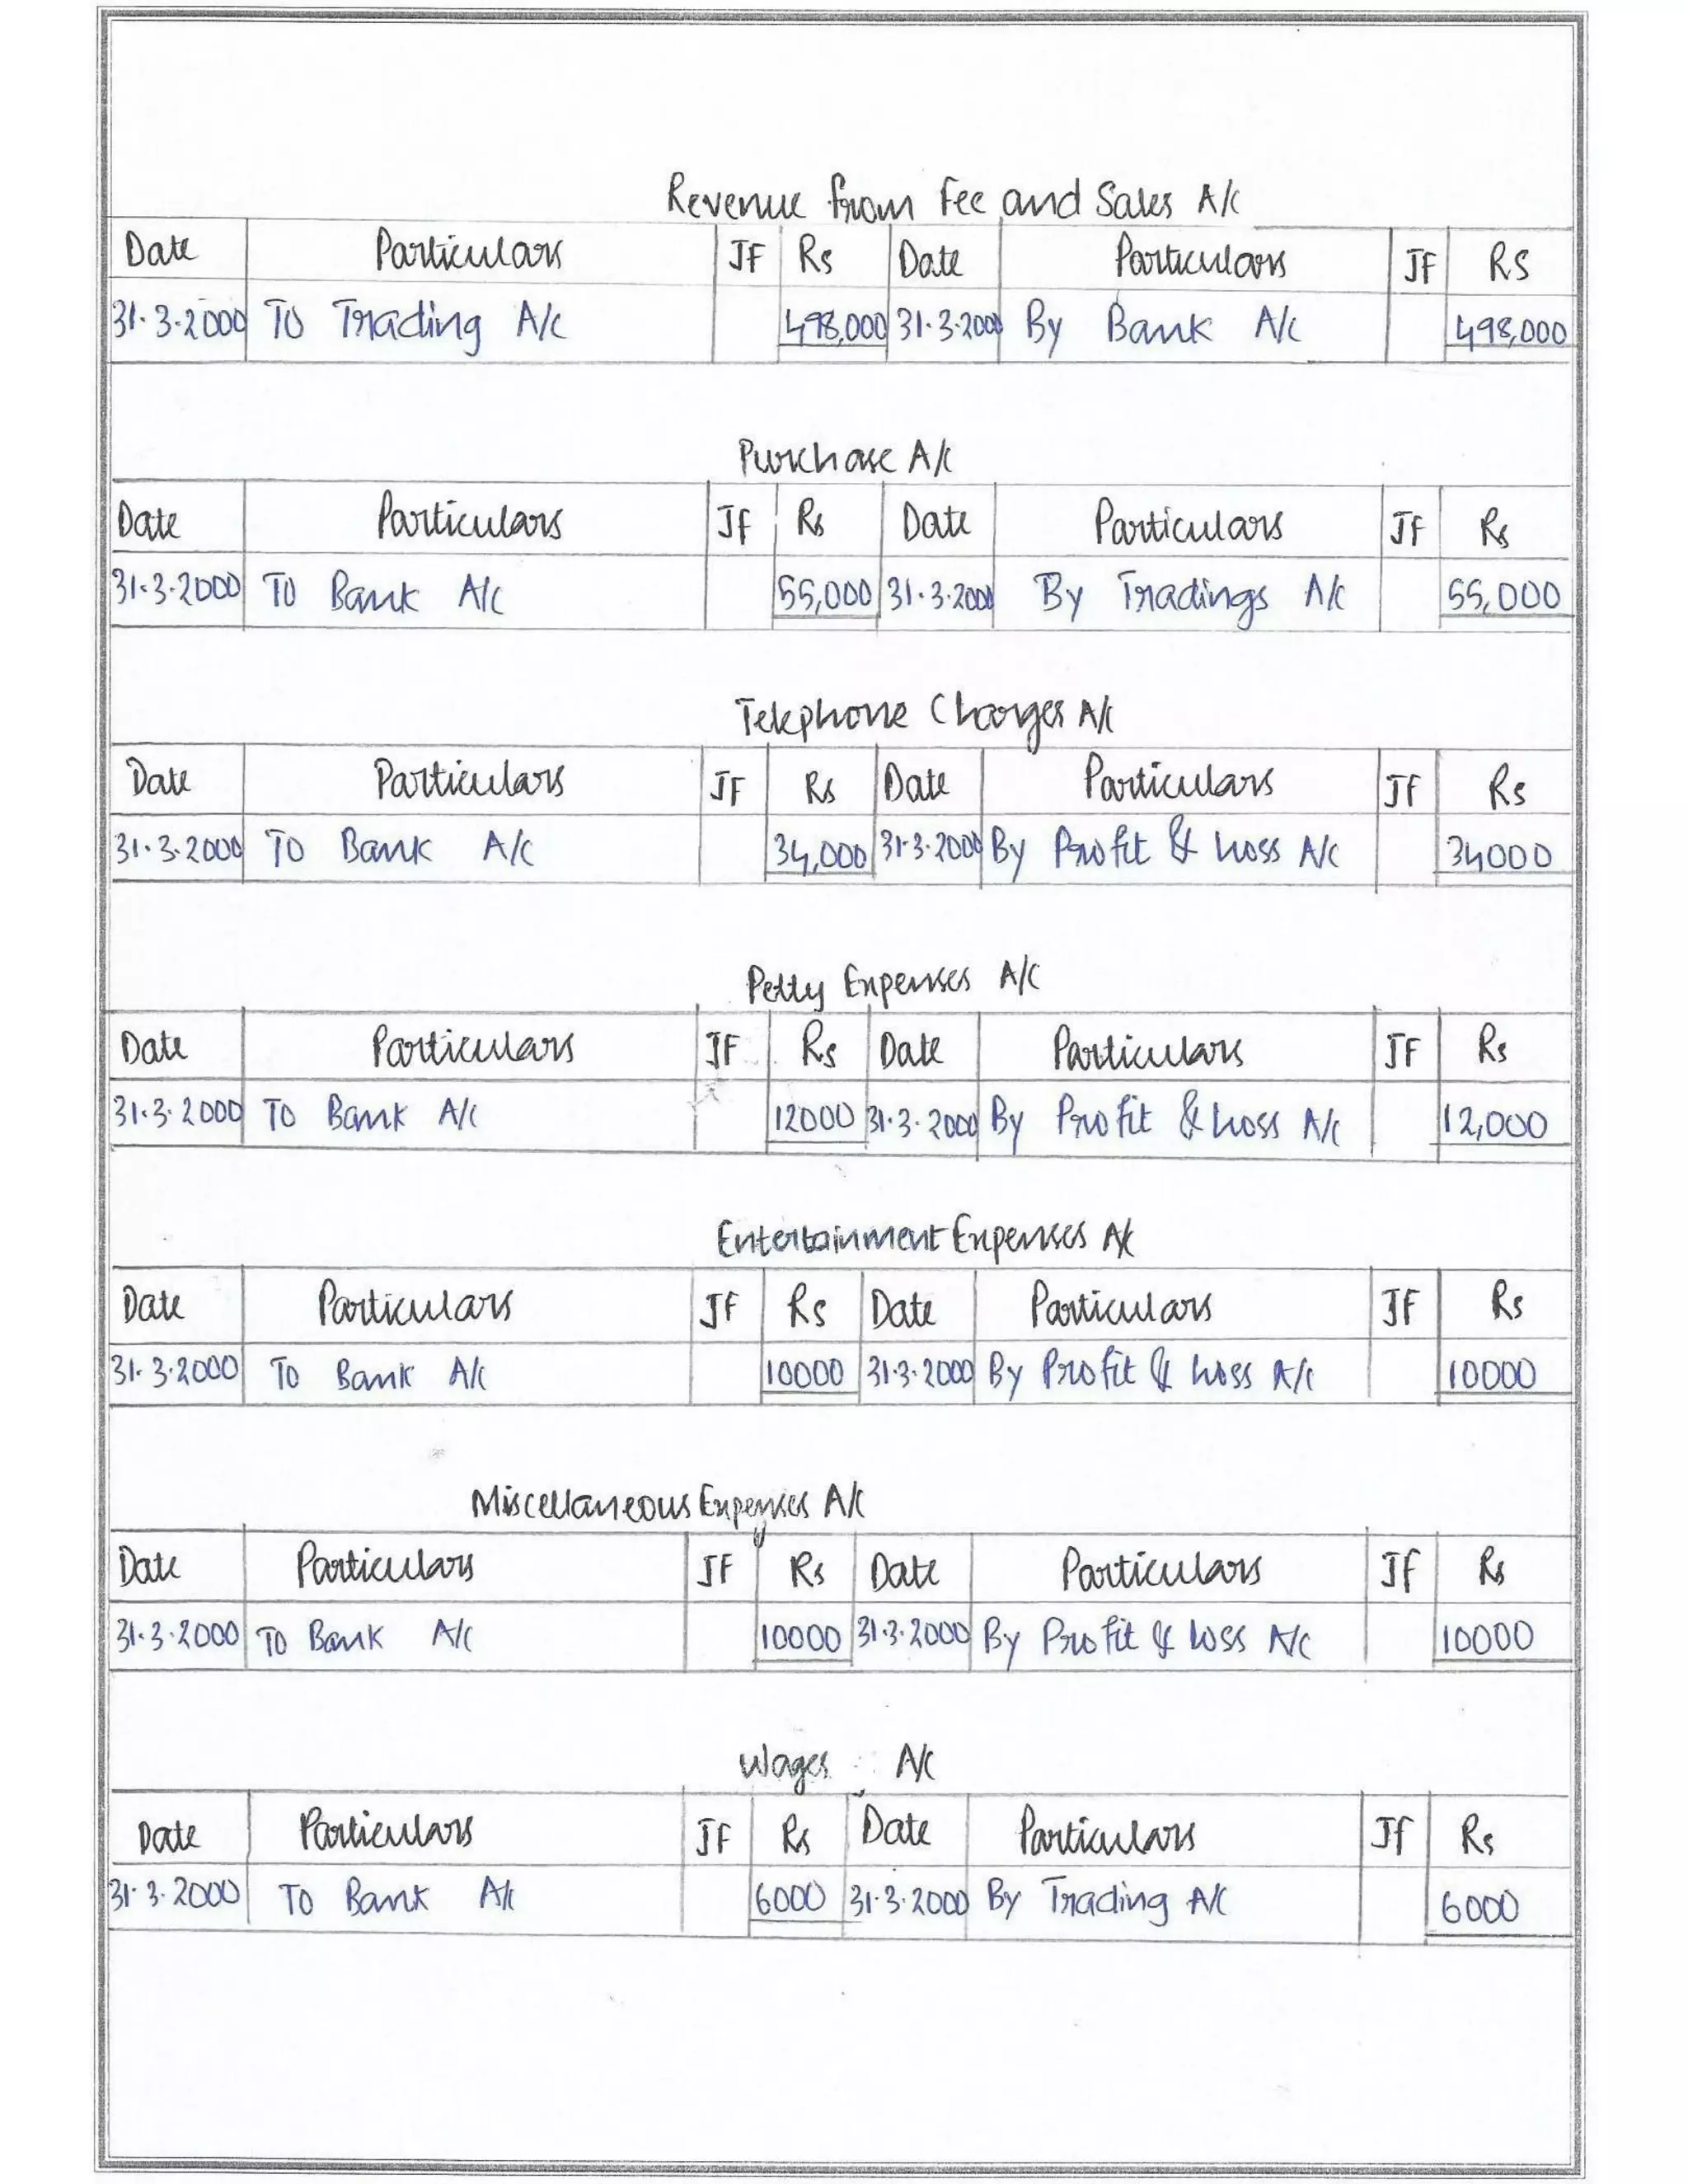 Revenue from Fee and Sales A/c
Date Particulars JF Rs Date Particulars JF RS
31.3.2000 To Trading A/c 498,000 31.3.2000 By Bank A/c 498,000
Purchase A/c
Date Particulars JF Rs Date Particulars JF Rs
31.3.2000 To Bank A/c 55,000 31.3.2000 By Tradings A/c 55,000
Telephone Charges A/c
Date Particulars JF Rs Date Particulars JF Rs
31.3.2000 To Bank A/c 34,000 31.3.2000 By Profit & Loss A/c 34000
Petty Expenses A/c
Date Particulars JF Rs Date Particulars JF Rs
31.3.2000 To Bank A/c 12000 31.3.2000 By Profit & Loss A/c 12,000
Entertainment Expenses A/c
Date Particulars JF Rs Date Particulars JF Rs
31.3.2000 To Bank A/c 10000 31.3.2000 By Profit & Loss A/c 10000
Miscellaneous Expenses A/c
Date Particulars JF Rs Date Particulars JF Rs
31.3.2000 To Bank A/c 10000 31.3.2000 By Profit & Loss A/c 10000
Wages A/c
Date Particulars JF Rs Date Particulars JF Rs
31.3.2000 To Bank A/c 6000 31.3.2000 By Trading A/c 6000